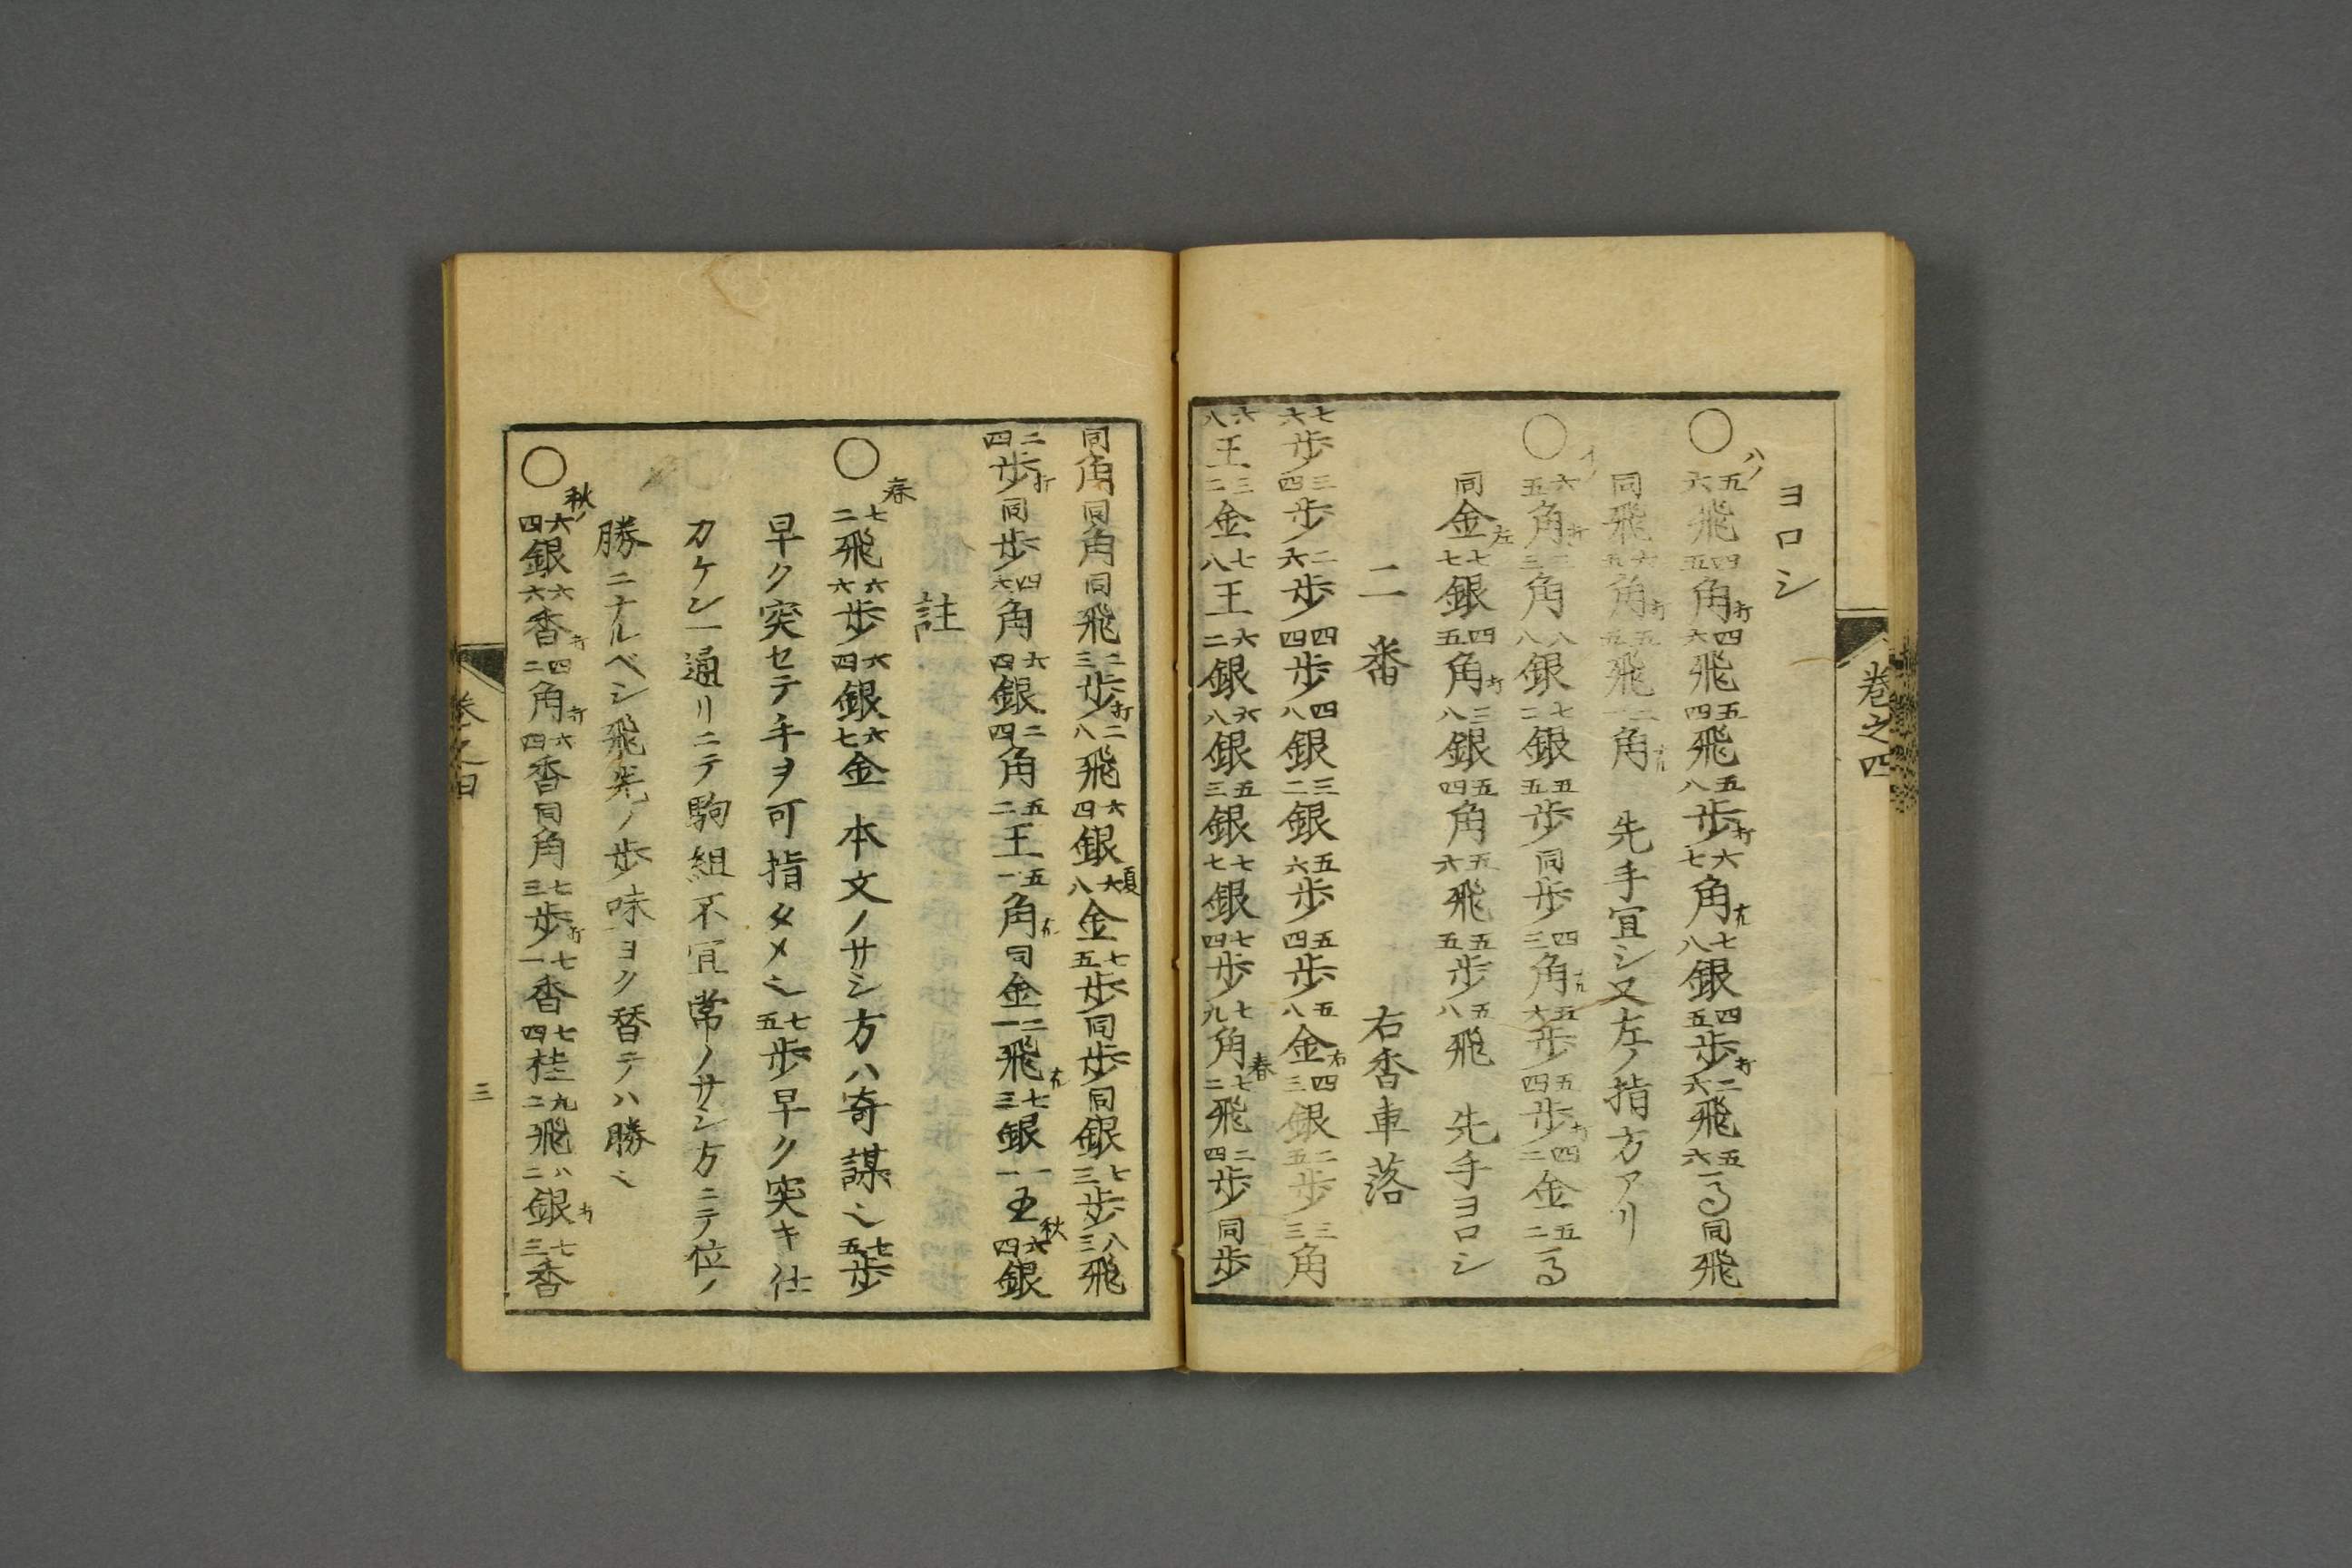 ヨロシ
○ハノ 五六飛 四五角打 四六飛 五四飛 五八歩打 六七角成 七八銀 四五歩打 二六飛 五六馬 同飛
同飛 六五角打 五五飛 二一角成 先手宜シ又左ノ指方アリ
○イノ 六五角打 三角 八八銀 七二銀 五五歩 同歩 四三角成 五六歩 五四歩打 四二金 五二馬
同金左 七七銀 四五角打 三八銀 五四角 五六飛 五五歩 五八飛 先手ヨロシ
二番 右香車落
七六歩 三四歩 二六歩 四四歩 四八銀 三二銀 五六歩 五四歩 五八金右 四三銀 二五歩 三三角
六八王 三二金 七八王 六二銀 六八銀 五三銀 七七銀 七四歩 七九角春 七二飛 二四歩 同歩
巻之四
同角 同角 同飛 二三歩打 二八飛 六四銀 六八金夏 七五歩 同歩 同銀 七三歩 八三飛
二四歩打 同歩 四六角 六四銀 二四角 五二王 五一角成 同金 二一飛成 七三銀 一一王秋 六四銀
註
○春 七二飛 六六歩 六四銀 六七金 本文ノサシ方ハ寄謀也 七五歩
早ク突セテ手ヲ可指タメ也 七五歩早ク突キ仕
カケシ一通リニテ駒組不宜常ノサシ方ニテ位ノ
勝ニナルベシ飛先ノ歩味ヨク替テハ勝也
○秋ノ 六四銀 六六香打 四二角打 六四香 同角 七三歩打 七一香 七四桂 九二飛 八二銀打 七三香
巻之四
三